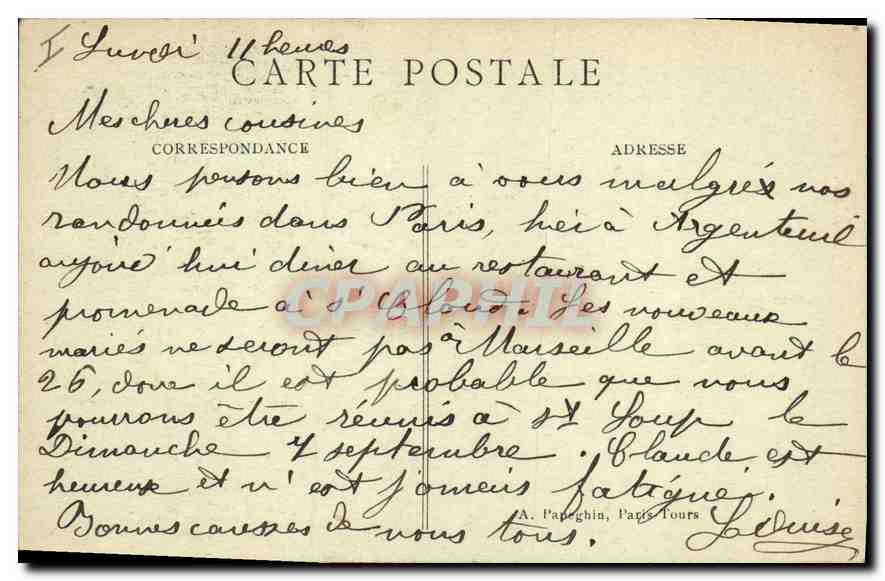 Lundi 11 heures
CARTE POSTALE
Mes cheres cousines
CORRESPONDANCE
ADRESSE
Nous pensons bien à vous malgrés nos
randonnées dans Paris, hier à Argenteuil
aujourd'hui diner au restaurant et
promenade à St Cloud. Les nouveaux
mariés ne seront pas à Marseille avant le
26, donc il est probable que nous
pourrons être réunis à St Loup le
Dimanche 7 septembre. Claude est
heureux et n'est jamais fatigué.
A. Papeghin, Paris-Tours
Bonnes caresses de nous tous. Louise
CPAPHIL